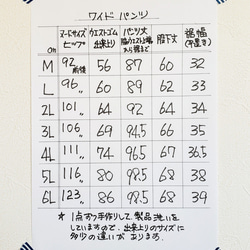 ワイドパンツ
cm ヌードサイズ ヒップ ウエストゴム 出来上り パンツ丈 脇ウエスト上端から裾まで 股下丈 裾幅(平置き)
M 92前後 56 87 60 32
L 96〃 60 89 62 33
2L 101〃 64 92 64 34
3L 106〃 69 94.5 66 35
4L 111〃 74 96.5 67 36.5
5L 116〃 80 98.5 68 38
6L 123〃 86 98.5 68 39
* 1点ずつ手作りして、製品洗いを
していますので、出来上りのサイズに
多少の違いがあります。